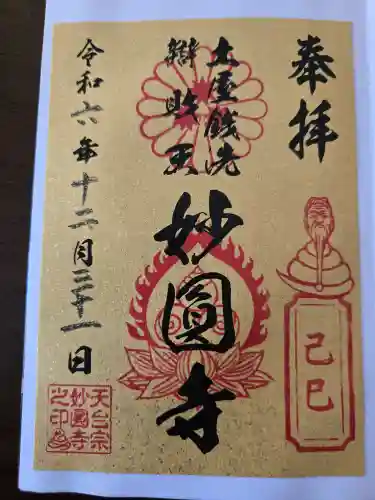 奉拝
土室銭洗
辯財天
妙圓寺
令和六年十二月三十一日
己巳
天台宗
妙圓寺
之印